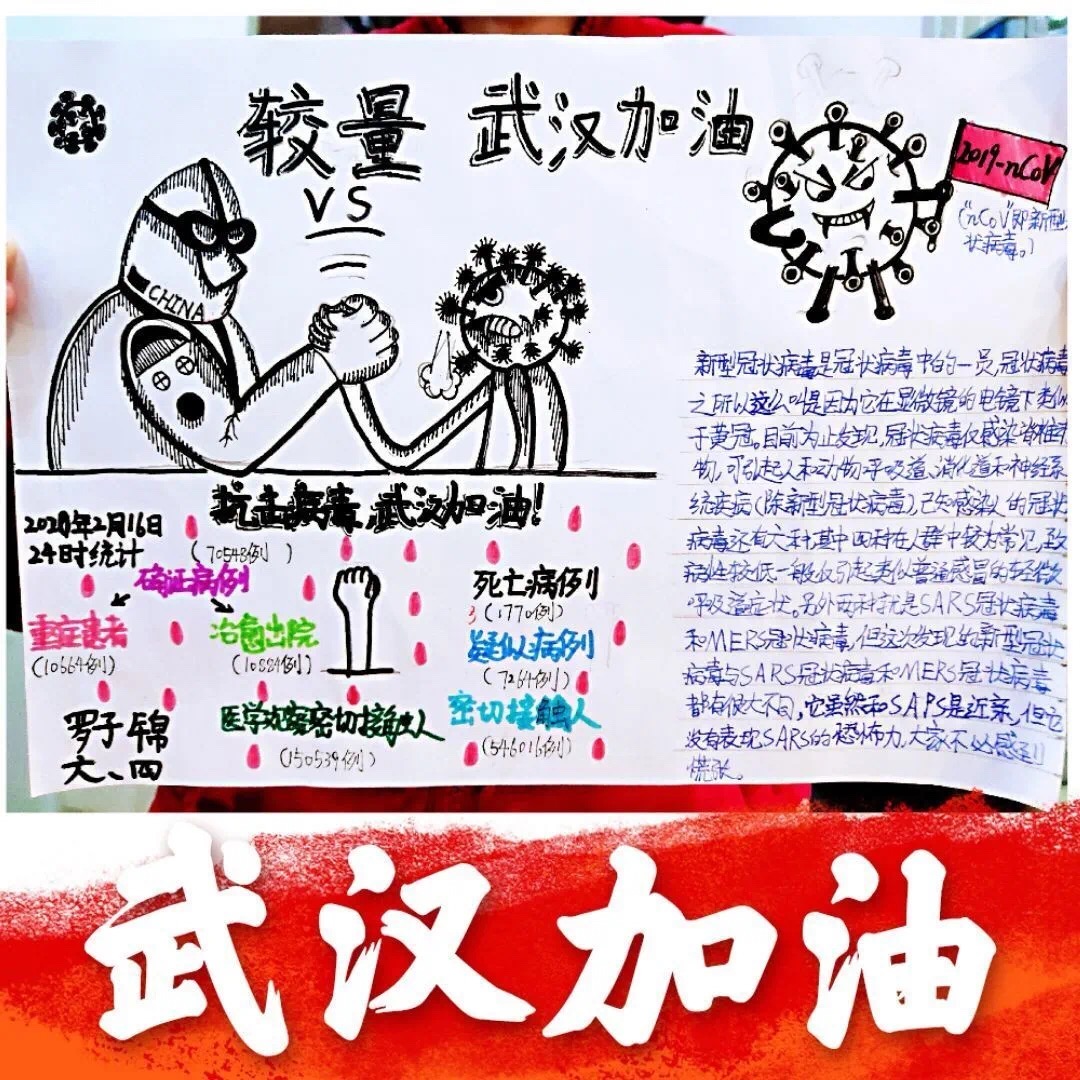 较量 武汉加油
VS
2019-nCoV
("nCoV"即新型
状病毒。)
CHINA
抗击病毒,武汉加油!
2020年2月16日
24时统计
(70548例)
确证病例
重症患者
(10664例)
治愈出院
(10884例)
死亡病例
(1770例)
疑似病例
(7264例)
医学观察密切接触人
(150539例)
密切接触人
(546016例)
罗子锦
六、四
新型冠状病毒是冠状病毒中的一员,冠状病毒
之所以这么叫是因为它在显微镜的电镜下类似
于黄冠。目前为止发现,冠状病毒仅感染脊椎动
物,可引起人和动物呼吸道、消化道和神经系
统疾病(除新型冠状病毒)已知感染人的冠状
病毒还有六种,其中四种在人群中较为常见,致
病性较低一般仅引起类似普通感冒的轻微
呼吸道症状。另外两种就是SARS冠状病毒
和MERS冠状病毒,但这次发现的新型冠状
病毒与SARS冠状病毒和MERS冠状病毒
都有很大不同,它虽然和SARS是近亲,但它
没有表现SARS的恐怖力,大家不必感到
慌张。
武汉加油